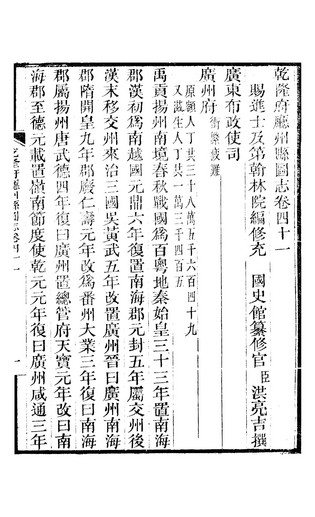 乾隆府廳州縣圖志卷四十一
賜進士及第翰林院編修充　國史館纂修官臣洪亮吉撰
廣東布政使司
廣州府衝繁疲難
原額人丁共三十八萬五千六百四十九
又滋生人丁共一萬三千四百五
禹貢揚州南境春秋戰國爲百粤地秦始皇三十三年置南海
郡漢初爲南越國元鼎六年復置南海郡元封五年屬交州後
漢末移交州來治三國吳黃武五年改置廣州晉曰廣州南海
郡隋開皇九年郡廢仁壽元年改爲番州大業三年復曰南海
郡屬揚州唐武德四年復曰廣州置總管府天寶元年改曰南
海郡至德元載置嶺南節度使乾元元年復曰廣州咸通三年